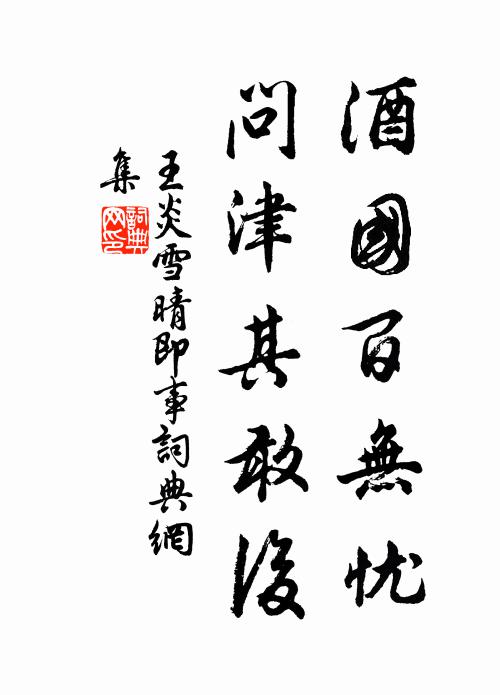 酒國百無忧
問津其敢後
王炎雪晴即事詞典網
集
詞典
网印